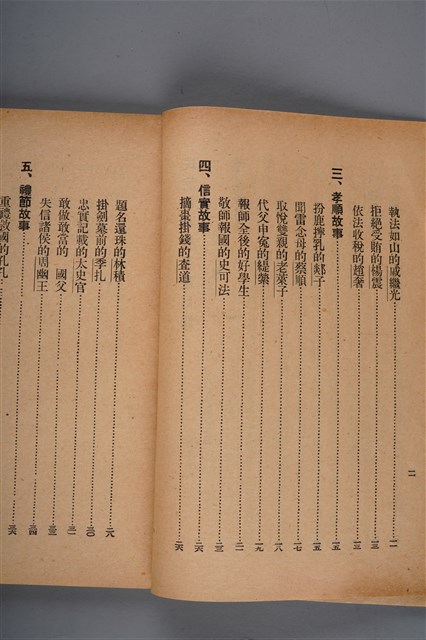 執法如山的戚繼光……一一
拒絕受賄的楊震……一三
依法收稅的趙奢……一三
三、孝順故事……一五
扮鹿擠乳的郯子……一五
聞雷念母的蔡順……一七
取悅雙親的老萊子……一八
代父申寃的緹縈……一九
報師全後的好學生……二一
敬師報國的史可法……二三
四、信實故事……二六
摘棗掛錢的查道……二六
二
題名還珠的林積……二八
掛劍墓前的季扎……三〇
忠實記載的太史官……三一
敢做敢當的　國父……三三
失信諸侯的周幽王……三四
五、禮節故事……三六
重禮救國的孔孔……三六